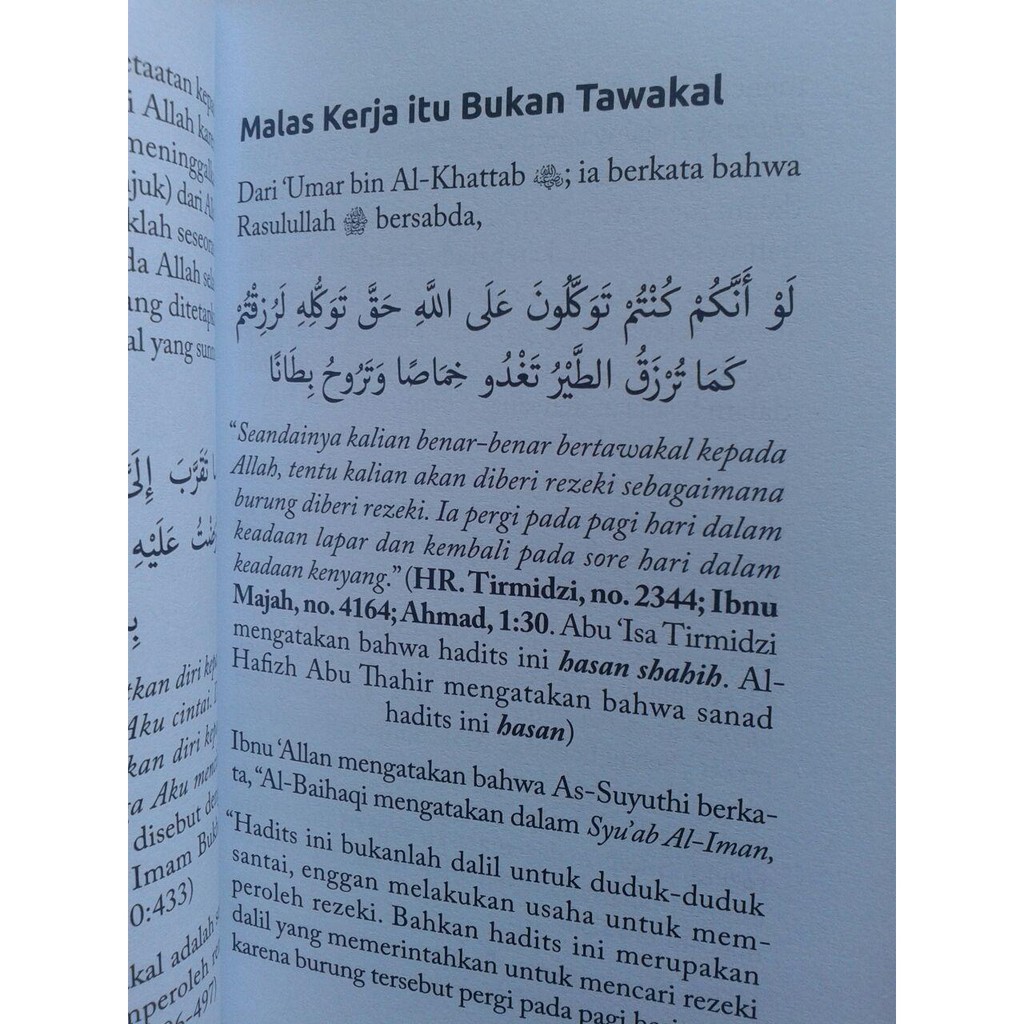 taatan
i Allah
juk) dari
klah
da Allah
ang
al yang
إِلَيَّ
عَلَيْهِ
diri
Aku cintai.
kan diri
a Aku
disebut
Imam
0:433)
kal adalah
Malas Kerja itu Bukan Tawakal
Dari ‘Umar bin Al-Khattab ; ia berkata bahwa
Rasulullah ﷺ bersabda,
لَوْ أَنَّكُمْ كُنْتُمْ تَوَكَّلُونَ عَلَى اللَّهِ حَقَّ تَوَكُّلِهِ لَرُزِقْتُمْ
كَمَا تُرْزَقُ الطَّيْرُ تَغْدُو خِمَاصًا وَتَرُوحُ بِطَانًا
“Seandainya kalian benar-benar bertawakal kepada
Allah, tentu kalian akan diberi rezeki sebagaimana
burung diberi rezeki. Ia pergi pada pagi hari dalam
keadaan lapar dan kembali pada sore hari dalam
keadaan kenyang.” (HR. Tirmidzi, no. 2344; Ibnu
Majah, no. 4164; Ahmad, 1:30. Abu ‘Isa Tirmidzi
mengatakan bahwa hadits ini hasan shahih. Al-
Hafizh Abu Thahir mengatakan bahwa sanad
hadits ini hasan)
Ibnu ‘Allan mengatakan bahwa As-Suyuthi berka-
ta, “Al-Baihaqi mengatakan dalam Syu’ab Al-Iman,
“Hadits ini bukanlah dalil untuk duduk-duduk
santai, enggan melakukan usaha untuk mem-
peroleh rezeki. Bahkan hadits ini merupakan
dalil yang memerintahkan untuk mencari rezeki
karena burung tersebut pergi pada pagi